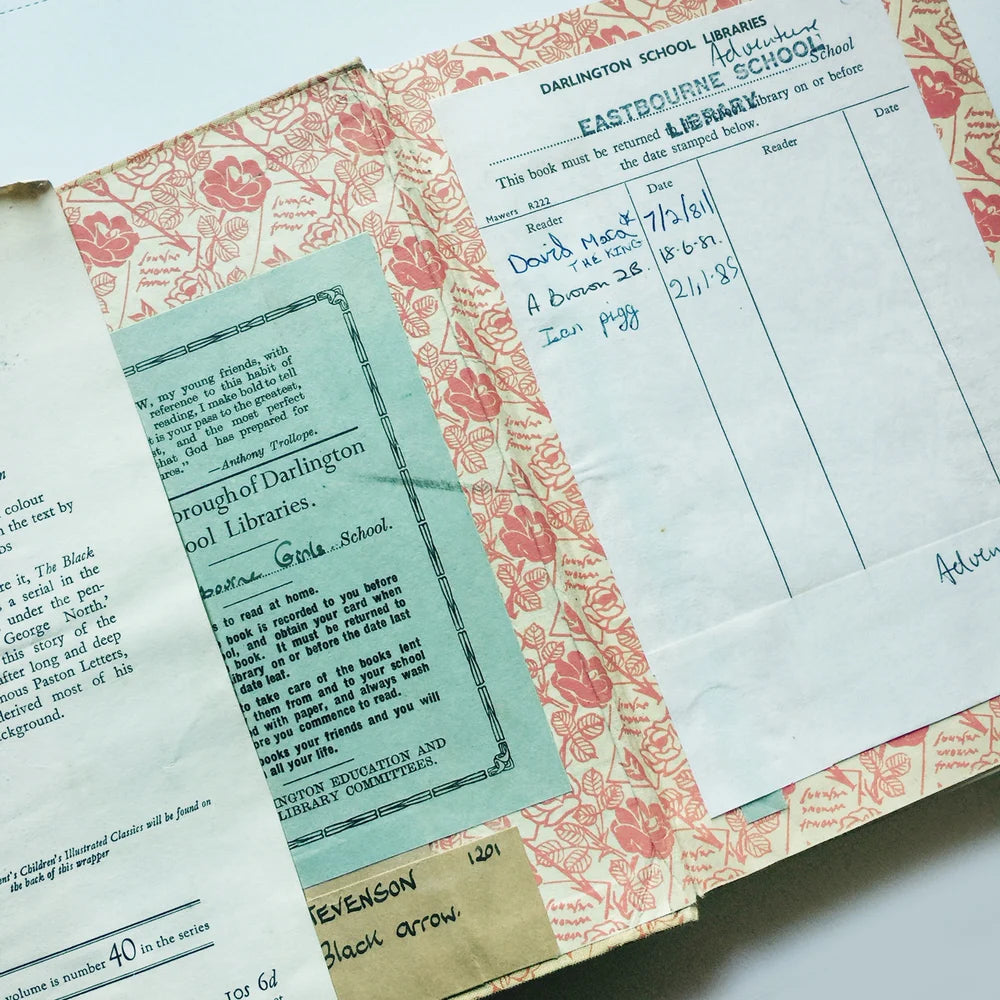 colour
n the text by
re it, The Black
s a serial in the
under the pen-
George North.'
this story of the
after long and deep
mous Paston Letters,
derived most of his
ckground.
nt's Children's Illustrated Classics will be found on
the back of this wrapper
volume is number 40 in the series
10s 6d
W, my young friends, with
reference to this habit of
reading, I make bold to tell
t is your pass to the greatest,
st, and the most perfect
that God has prepared for
ures."
—Anthony Trollope.
orough of Darlington
ool Libraries.
bourne Girls School.
s to read at home.
book is recorded to you before
ol, and obtain your card when
book. It must be returned to
ibrary on or before the date last
date leaf.
to take care of the books lent
them from and to your school
d with paper, and always wash
ore you commence to read.
books your friends and you will
all your life.
NGTON EDUCATION AND
LIBRARY COMMITTEES.
1201
TEVENSON
Black arrow.
DARLINGTON SCHOOL LIBRARIES
Adventure
EASTBOURNE SCHOOL School
LIBRARY
This book must be returned to the School Library on or before
the date stamped below.
Mawers R222
Reader Date Reader Date
David 7/2/81
THE KING
A Brown 2B. 18-6-82.
Ian pigg 21,1-85
Adven